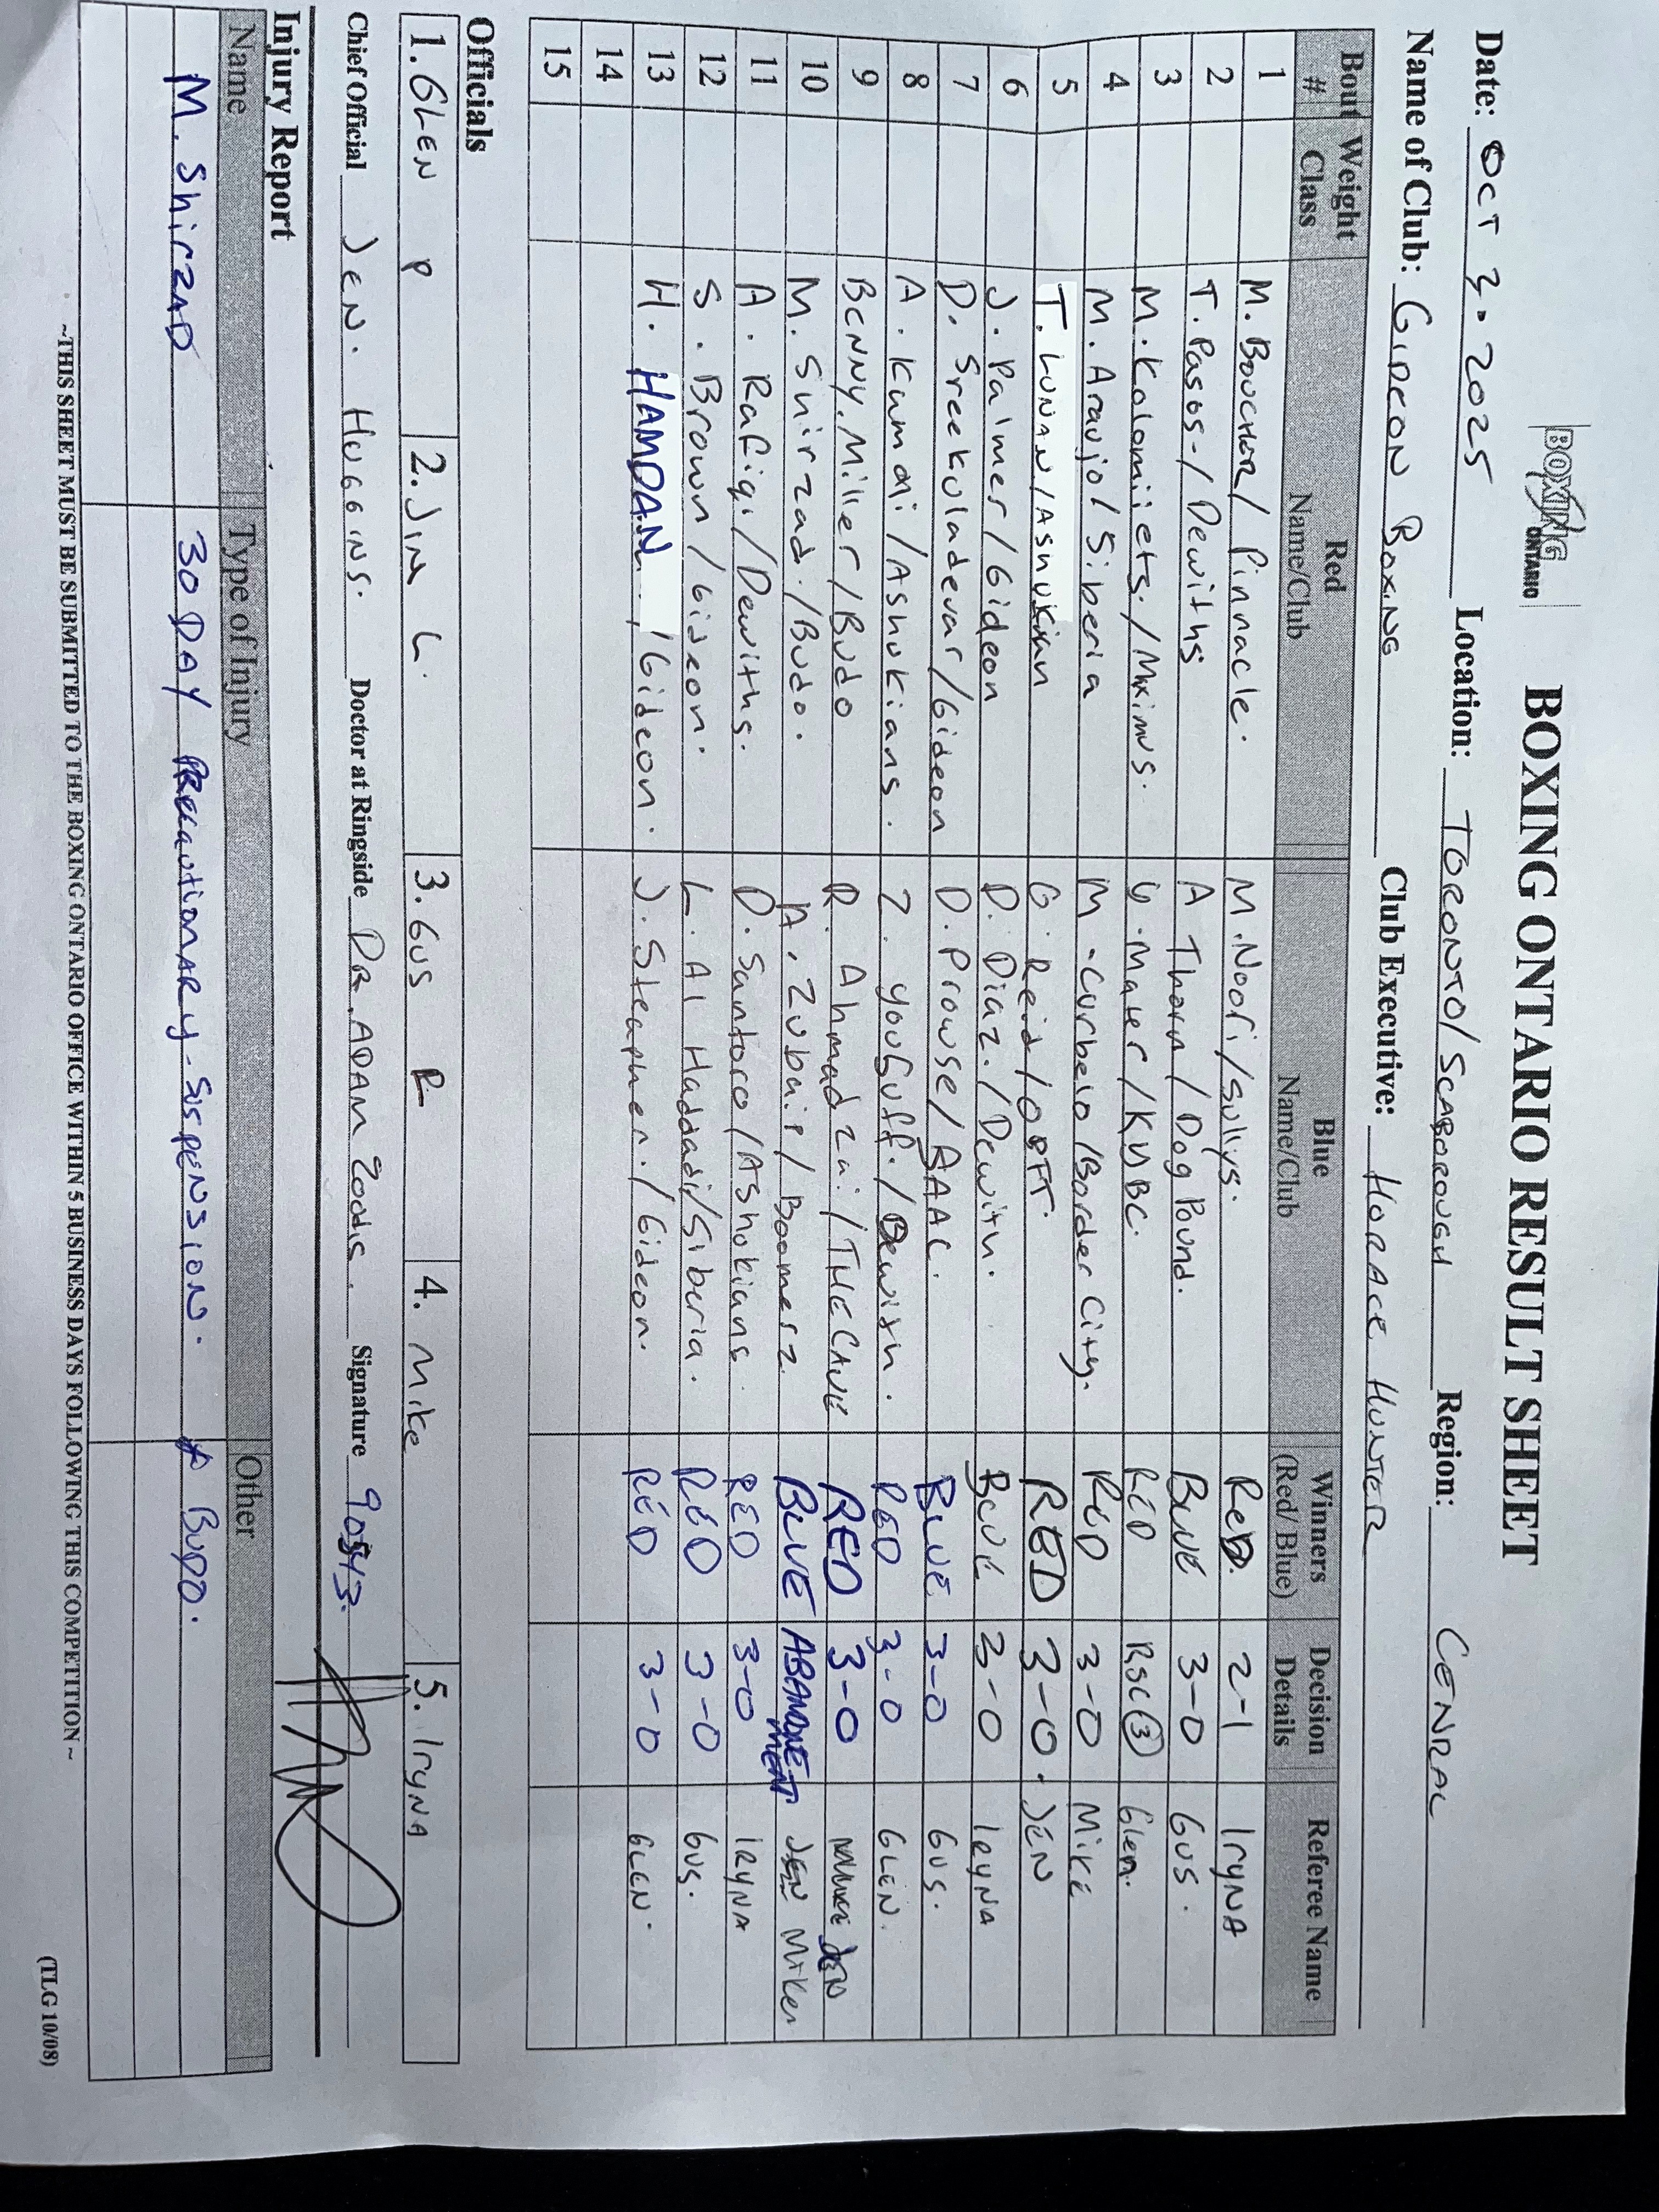 BOXING ONTARIO
BOXING ONTARIO RESULT SHEET
Date: OCT 3. 2025 Location: TORONTO/SCARBOROUGH Region: CENRAL
Name of Club: GIDEON BOXING Club Executive: HORACE HUNTER
Bout # Weight Class Red Name/Club Blue Name/Club Winners (Red/ Blue) Decision Details Referee Name
1 M. BOUCHER/ Pinnacle. M. Noori/Sullys. RED. 2-1 IRYNA
2 T. Pasos-/Dewiths A Thorn/Dog Pound. BLUE 3-0 GUS.
3 M. Kolomiets./Maximus. G. Mater/KYBC. RED RSC(3) Glen.
4 M. Araujo/Siberia M. Curbelo/Border City. RED 3-0 MIKE
5 T. LUNAN/Ashukian G. Reid/OBFT. RED 3-0. JEN
6 J. Palmer/Gideon D. Diaz./Dewith. BLUE 3-0 IRYNA
7 D. Sreekuladevar/Gideon D. Prowse/BAAC. BLUE 3-0 GUS.
8 A. Kumari/Ashukians. Z. yoUsuff./Dewith. RED 3-0 GLEN.
9 BENNY. Miller/Budo R. Ahmadzai/THE CAVE RED 3-0 JEN
10 M. Shirzad./Budo. A. Zubair/Boomerz. BLUE ABANDONEMENT Mike
11 A. Rafiqi/Dewiths. D. Santoro/AShokians. RED 3-0 IRYNA
12 S. Brown/Gideon. L. Al Haddadi/Siberia. RED 3-0 GUS.
13 H. HAMDAN/Gideon. J. Stephen./Gideon. RED 3-0 GLEN.
14
15
Officials
1. GLEN P 2. Jim L. 3. GUS R 4. Mike 5. IRYNA
Chief Official JEN. HUGGINS. Doctor at Ringside DR. ADAM Signature
Injury Report
Name Type of Injury Other
M. ShirzAD 30 DAY PRecautionARy-SUSPENSION. BUDO.
~THIS SHEET MUST BE SUBMITTED TO THE BOXING ONTARIO OFFICE WITHIN 5 BUSINESS DAYS FOLLOWING THIS COMPETITION ~
(TLG 10/08)